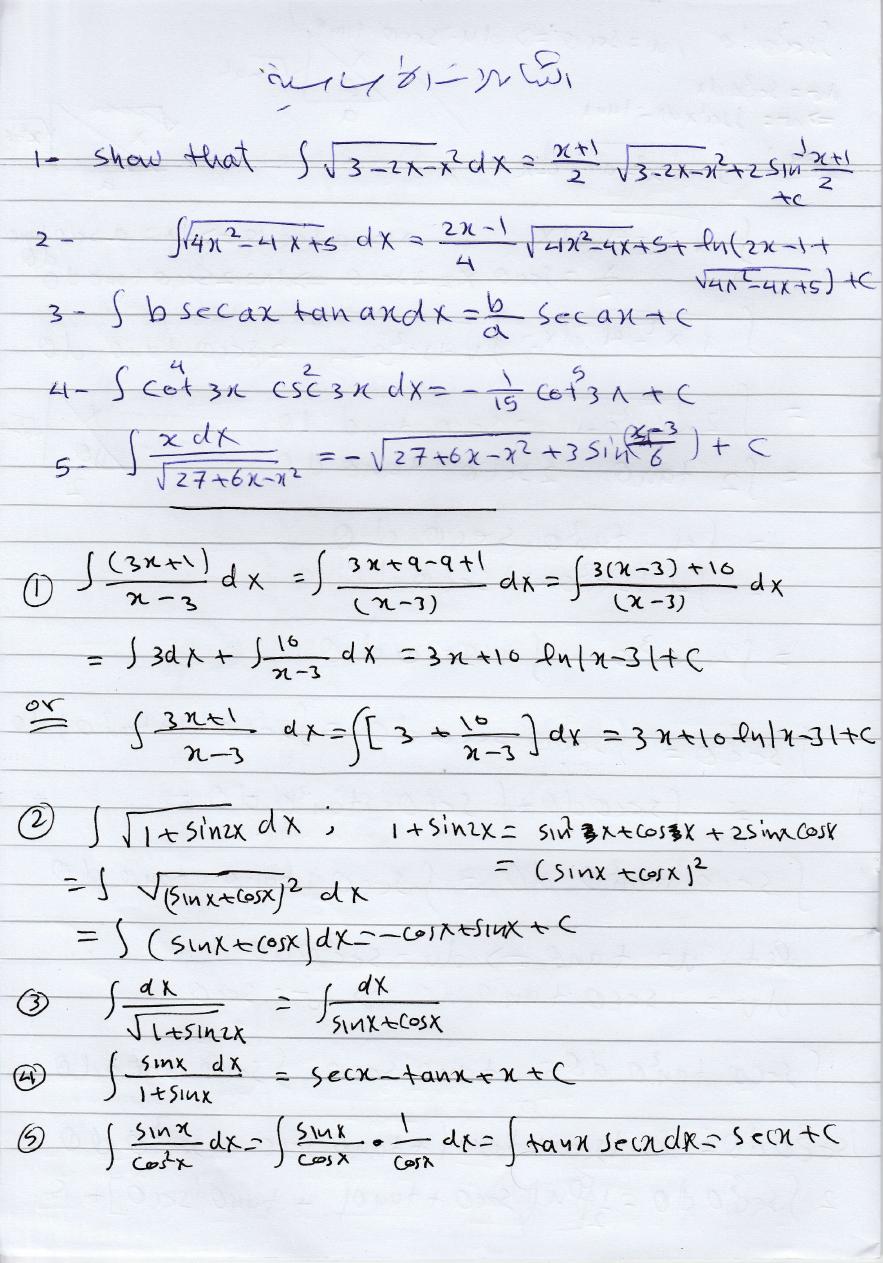 التكاملات الأساسية
1- show that ∫ √(3-2x-x²) dx = (x+1)/2 √(3-2x-x²) + 2 sin⁻¹ (x+1)/2 + c
2- ∫√(4x²-4x+5) dx = (2x-1)/4 √(4x²-4x+5) + ln(2x-1+√(4x²-4x+5)) + C
3- ∫ b sec ax tan ax dx = b/a sec ax + C
4- ∫ cot⁴ 3x csc² 3x dx = - 1/15 cot⁵ 3x + C
5- ∫ x dx / √(27+6x-x²) = - √(27+6x-x²) + 3 sin⁻¹((x-3)/6) + C
① ∫ (3x+1)/(x-3) dx = ∫ (3x+9-9+1)/(x-3) dx = ∫ (3(x-3)+10)/(x-3) dx
= ∫ 3dx + ∫ 10/(x-3) dx = 3x+10 ln|x-3|+C
or ∫ (3x+1)/(x-3) dx = ∫[3 + 10/(x-3)] dx = 3x+10 ln|x-3|+C
② ∫ √(1+sin2x) dx ; 1+sin2x = sin²x+cos²x + 2sinx cosx
= (sinx+cosx)²
= ∫ √((sinx+cosx)²) dx
= ∫ (sinx+cosx)dx = -cosx+sinx + C
③ ∫ dx/√(1+sin2x) = ∫ dx/(sinx+cosx)
④ ∫ sinx dx/(1+sinx) = secx-tanx+x+C
⑤ ∫ sinx/cos²x dx = ∫ sinx/cosx • 1/cosx dx = ∫ tanx secx dx = secx+C